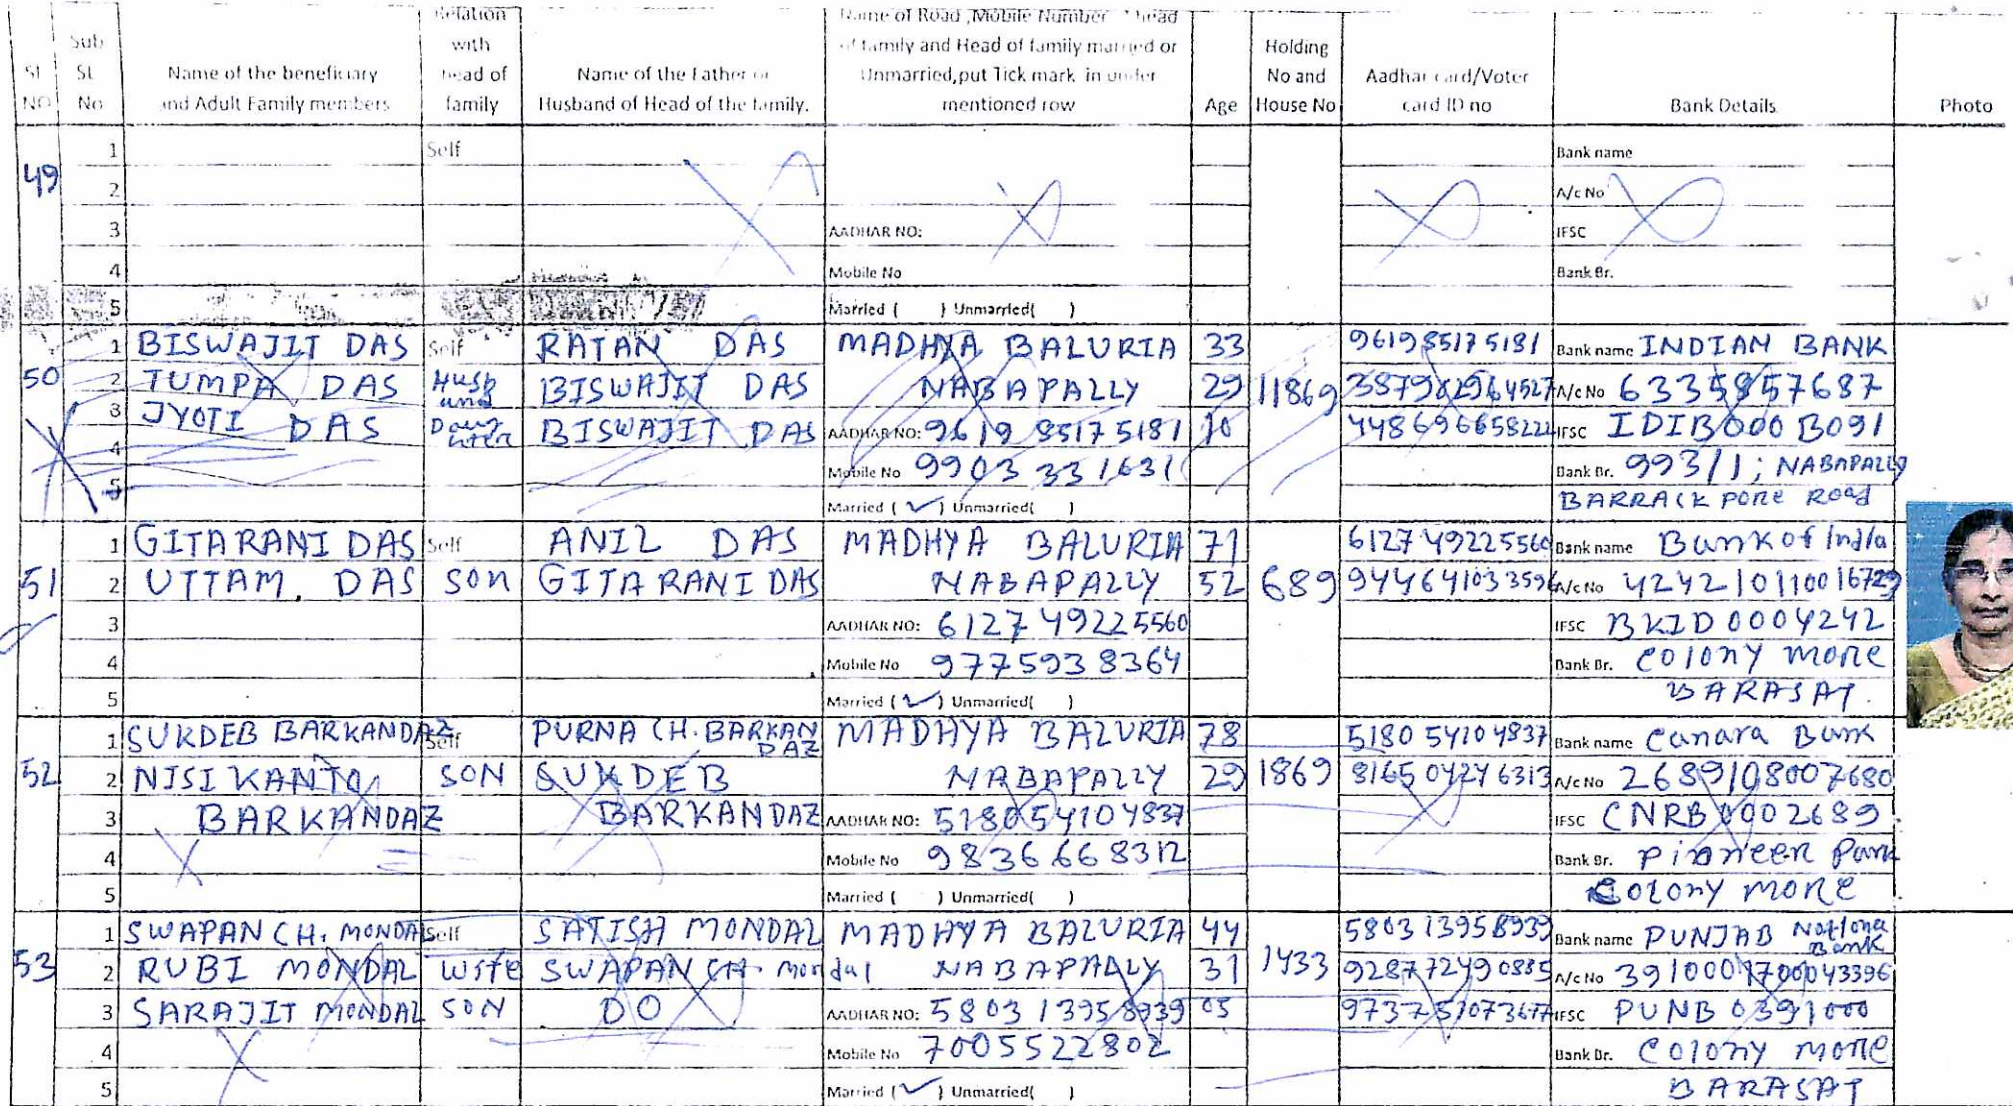 Sl NO
Sub SL No
Name of the beneficiary and Adult Family members
Relation with head of family
Name of the Father or Husband of Head of the family.
Name of Road ,Mobile Number head of family and Head of family married or Unmarried,put Tick mark in under mentioned row
Age
Holding No and House No
Aadhar card/Voter card ID no
Bank Details
Photo
49
1 Self Bank name
2 A/c No
3 AADHAR NO: IFSC
4 Mobile No Bank Br.
5 Married ( ) Unmarried( )
50
1 BISWAJIT DAS Self RATAN DAS MADHYA BALURIA 33 961985175181 Bank name INDIAN BANK
2 TUMPA DAS Husband BISWAJIT DAS NABAPALLY 29 11869 387962964527 A/c No 6335857687
3 JYOTI DAS Daughter BISWAJIT DAS AADHAR NO: 9619 85175181 10 448696658222 IFSC IDIB000B091
4 Mobile No 9903 331631 Bank Br. 993/1; NABAPALLY
5 Married ( ✓ ) Unmarried( ) BARRACKPORE Road
51
1 GITARANI DAS Self ANIL DAS MADHYA BALURIA 71 6127 49225560 Bank name Bank of India
2 UTTAM. DAS SON GITARANI DAS NABAPALLY 52 689 944641033596 A/c No 424210110016729
3 AADHAR NO: 6127 49225560 IFSC BKID0004242
4 Mobile No 9775938364 Bank Br. Colony more
5 Married ( ✓ ) Unmarried( ) BARASAT.
52
1 SUKDEB BARKANDAZ Self PURNA CH. BARKANDAZ MADHYA BALURIA 78 5180 54104837 Bank name Canara Bank
2 NISIKANTO SON SUKDEB NABAPALLY 29 1869 8165 04246313 A/c No 2689108007680
3 BARKANDAZ BARKANDAZ AADHAR NO: 5180 54104837 IFSC CNRB0002689
4 Mobile No 9836668312 Bank Br. Pioneer Park
5 Married ( ) Unmarried( ) Colony more
53
1 SWAPAN CH. MONDAL Self SATISH MONDAL MADHYA BALURIA 44 5803 13958939 Bank name PUNJAB National Bank
2 RUBI MONDAL wife SWAPAN CH. Mondal NABAPALLY 31 1433 928772490885 A/c No 3910001700043396
3 SARAJIT MONDAL SON DO AADHAR NO: 5803 13958939 05 IFSC PUNB0391000
4 Mobile No 7005522802 Bank Br. Colony more
5 Married ( ✓ ) Unmarried( ) BARASAT